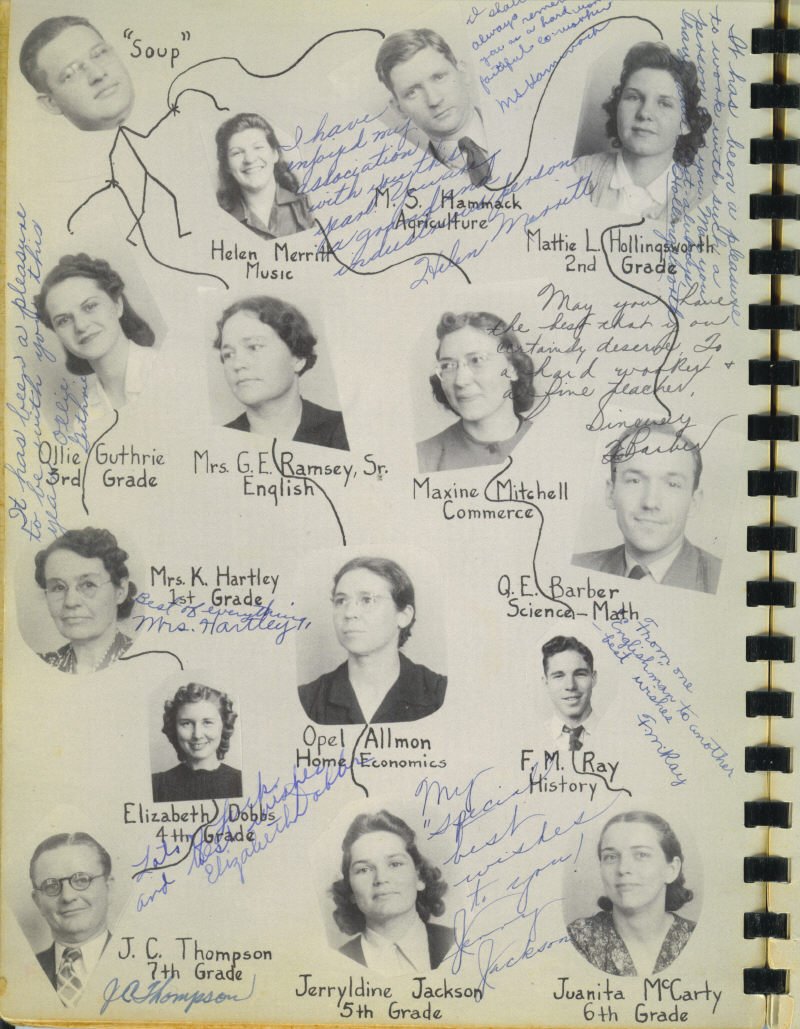 "Soup"
I shall
always remember
you as a hard working
faithful co-worker
M S Hammack
It has been a pleasure
to work with such a
person as you. May you
Hollingsworth
I have
enjoyed my
association
with you this
year. You are
a grand and
industrious person
Helen Merritt
M. S. Hammack
Agriculture
Helen Merritt
Music
Mattie L. Hollingsworth
2nd Grade
It has been a pleasure
to be with you this
year
Ollie
Guthrie
May you have
the best that you
certainly deserve. To
a hard worker &
a fine teacher.
Sincerely
Barber
Ollie Guthrie
3rd Grade
Mrs. G. E. Ramsey, Sr.
English
Maxine Mitchell
Commerce
O. E. Barber
Science-Math
Mrs. K. Hartley
1st Grade
Best of everything,
Mrs. Hartley
From one
Englishman to another
- best wishes
F M Ray
Opel Allmon
Home Economics
F. M. Ray
History
Elizabeth Dobbs
4th Grade
Lots of luck
and best wishes
Elizabeth Dobbs
My
"special"
best
wishes
to you!
Jerry
Jackson
J. C. Thompson
7th Grade
J C Thompson
Jerryldine Jackson
5th Grade
Juanita McCarty
6th Grade